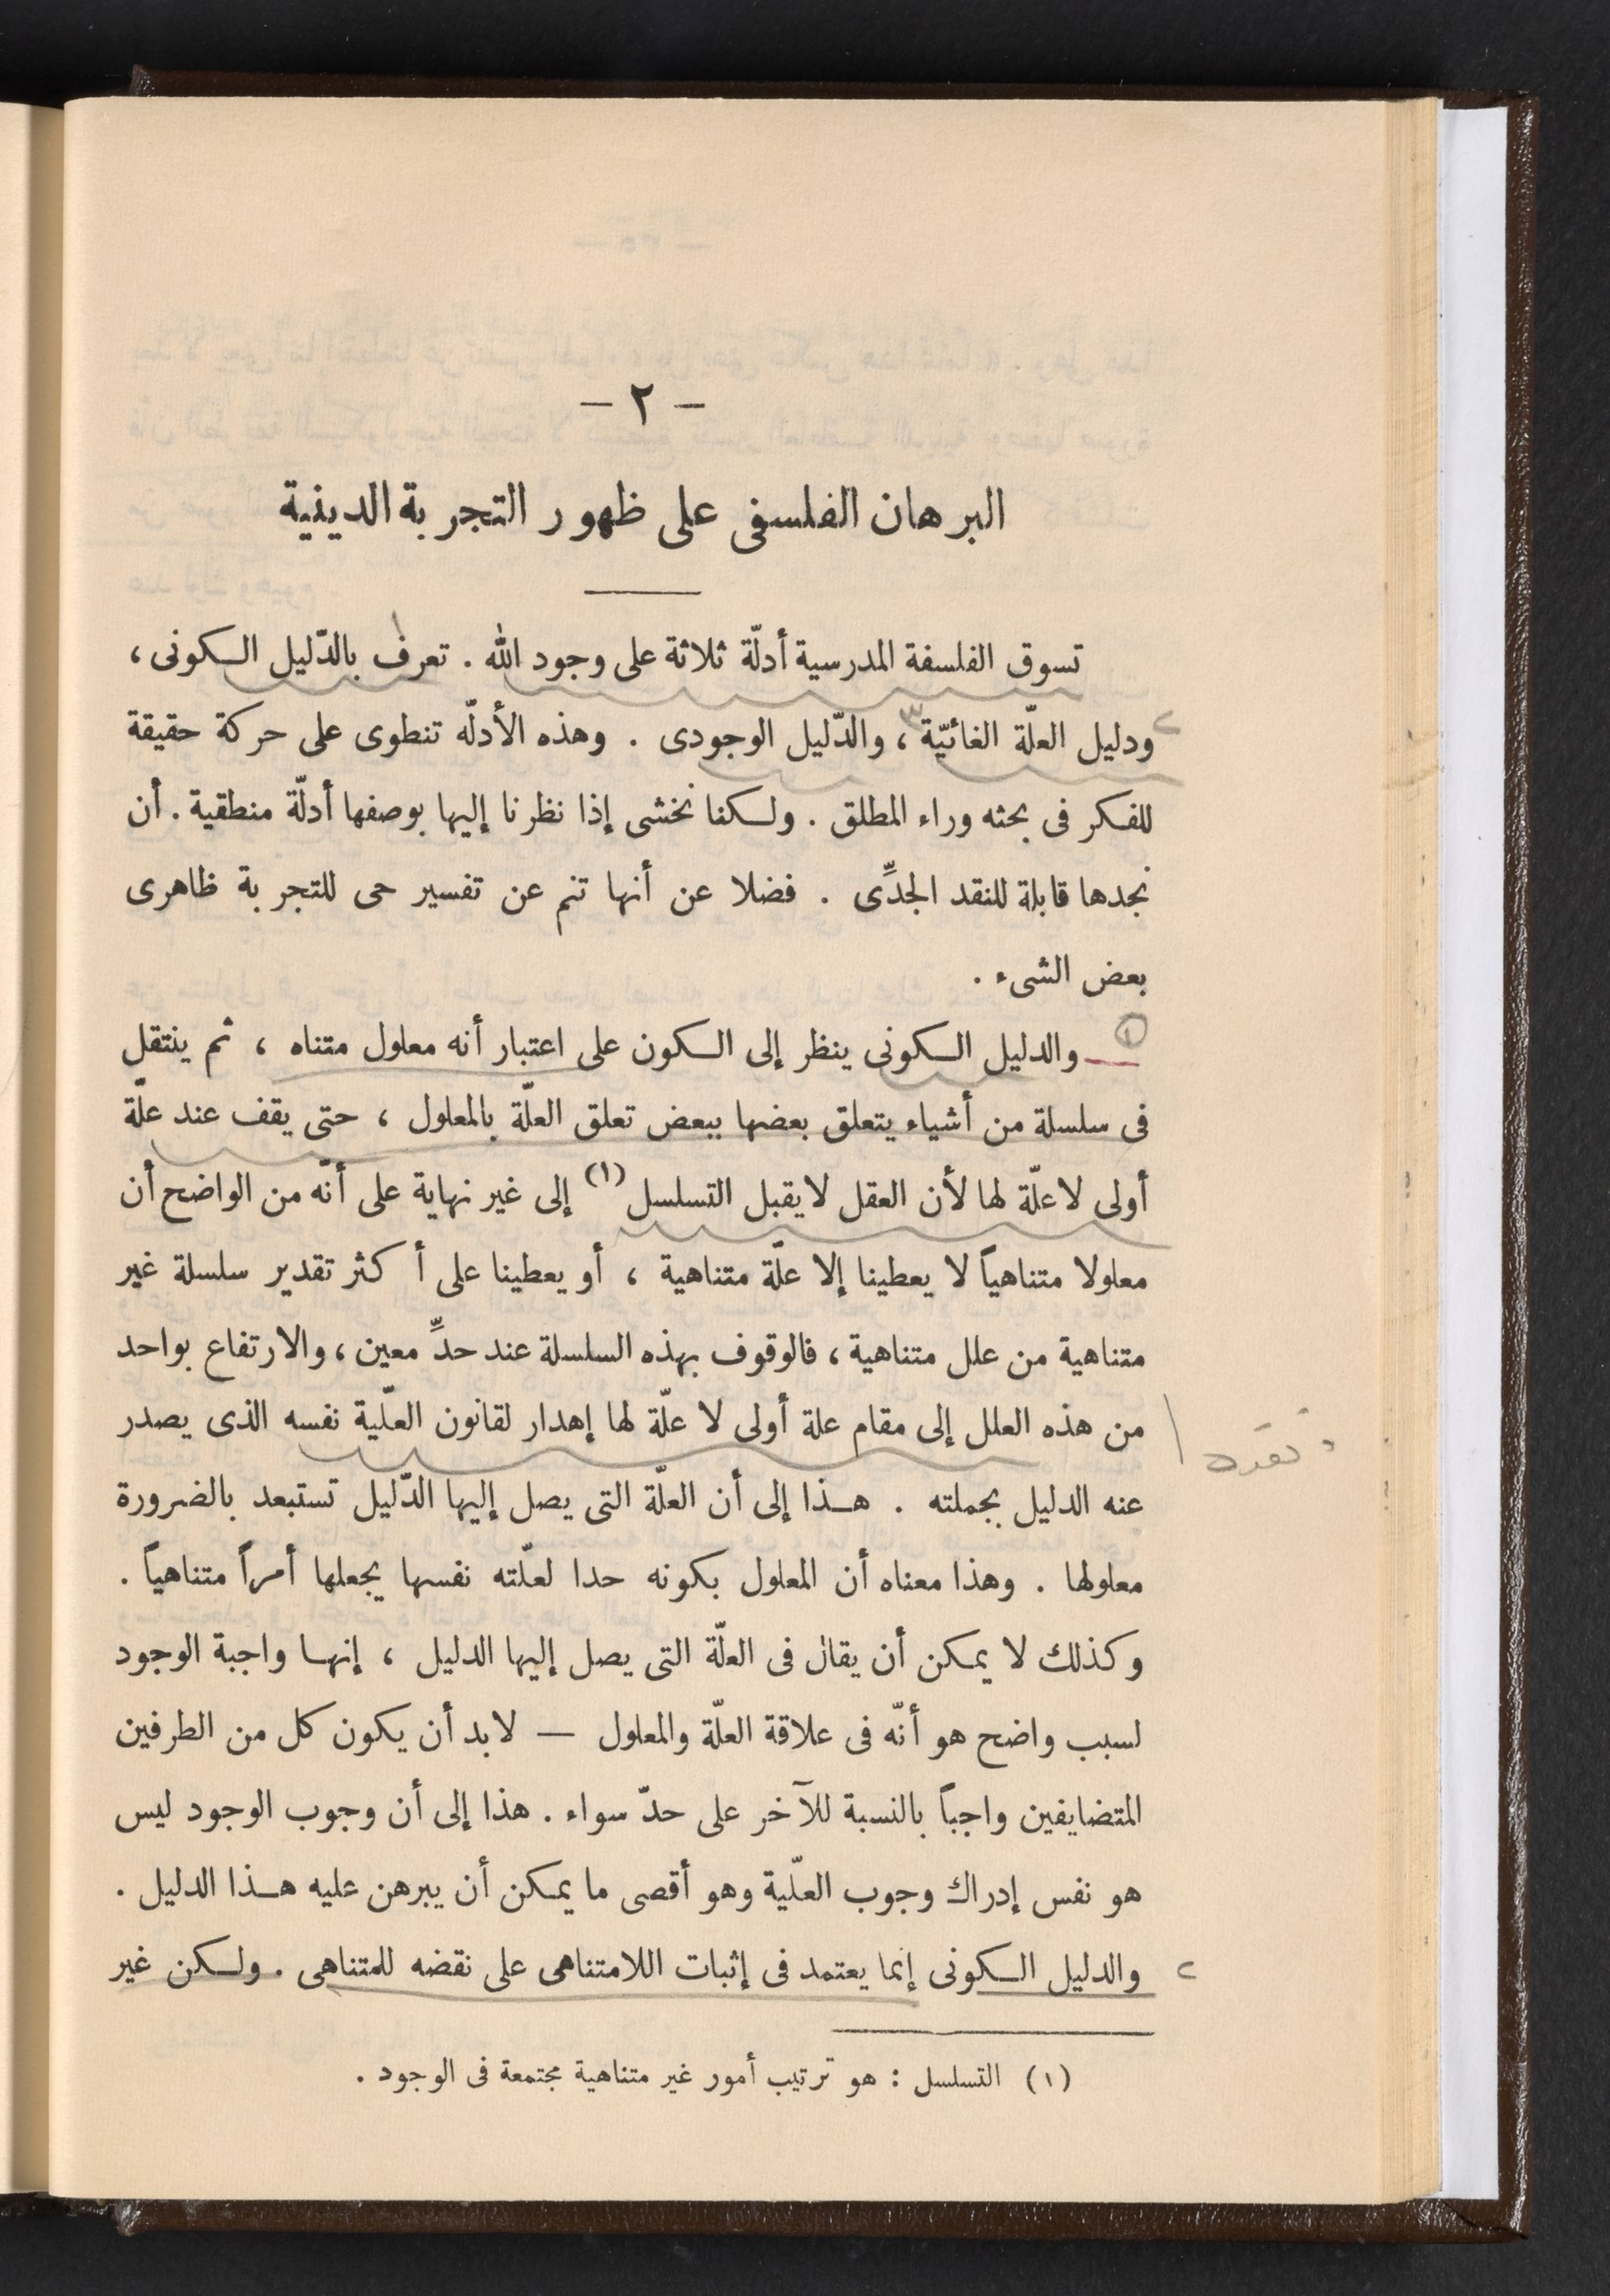 – ٢ –
البرهان الفلسفى على ظهور التجربة الدينية
تسوق الفلسفة المدرسية أدلّة ثلاثة على وجود الله . تعرف بالدّليل الكونى ،
ودليل العلّة الغائيّة ، والدّليل الوجودى . وهذه الأدلّه تنطوى على حركة حقيقة
للفكر فى بحثه وراء المطلق . ولكنا نخشى إذا نظرنا إليها بوصفها أدلّة منطقية . أن
نجدها قابلة للنقد الجدِّى . فضلا عن أنها تنم عن تفسير حى للتجربة ظاهرى
بعض الشىء .
١ — والدليل الكونى ينظر إلى الكون على اعتبار أنه معلول متناه ، ثم ينتقل
فى سلسلة من أشياء يتعلق بعضها ببعض تعلق العلّة بالمعلول ، حتى يقف عند علّة
أولى لاعلّة لها لأن العقل لايقبل التسلسل (١) إلى غير نهاية على أنّه من الواضح أن
معلولا متناهياً لا يعطينا إلا علّة متناهية ، أو يعطينا على أكثر تقدير سلسلة غير
متناهية من علل متناهية ، فالوقوف بهذه السلسلة عند حدٍّ معين ، والارتفاع بواحد
من هذه العلل إلى مقام علة أولى لا علّة لها إهدار لقانون العلّية نفسه الذى يصدر
نقده
عنه الدليل بجملته . هذا إلى أن العلّة التى يصل إليها الدّليل تستبعد بالضرورة
معلولها . وهذا معناه أن المعلول بكونه حدا لعلّته نفسها يجعلها أمراً متناهياً .
وكذلك لا يمكن أن يقال فى العلّة التى يصل إليها الدليل ، إنها واجبة الوجود
لسبب واضح هو أنّه فى علاقة العلّة والمعلول — لابد أن يكون كل من الطرفين
المتضايفين واجباً بالنسبة للآخر على حدّ سواء . هذا إلى أن وجوب الوجود ليس
هو نفس إدراك وجوب العلّية وهو أقصى ما يمكن أن يبرهن عليه هذا الدليل .
والدليل الكونى إنما يعتمد فى إثبات اللامتناهى على نقضه للمتناهى . ولكن غير
(١) التسلسل : هو ترتيب أمور غير متناهية مجتمعة فى الوجود .